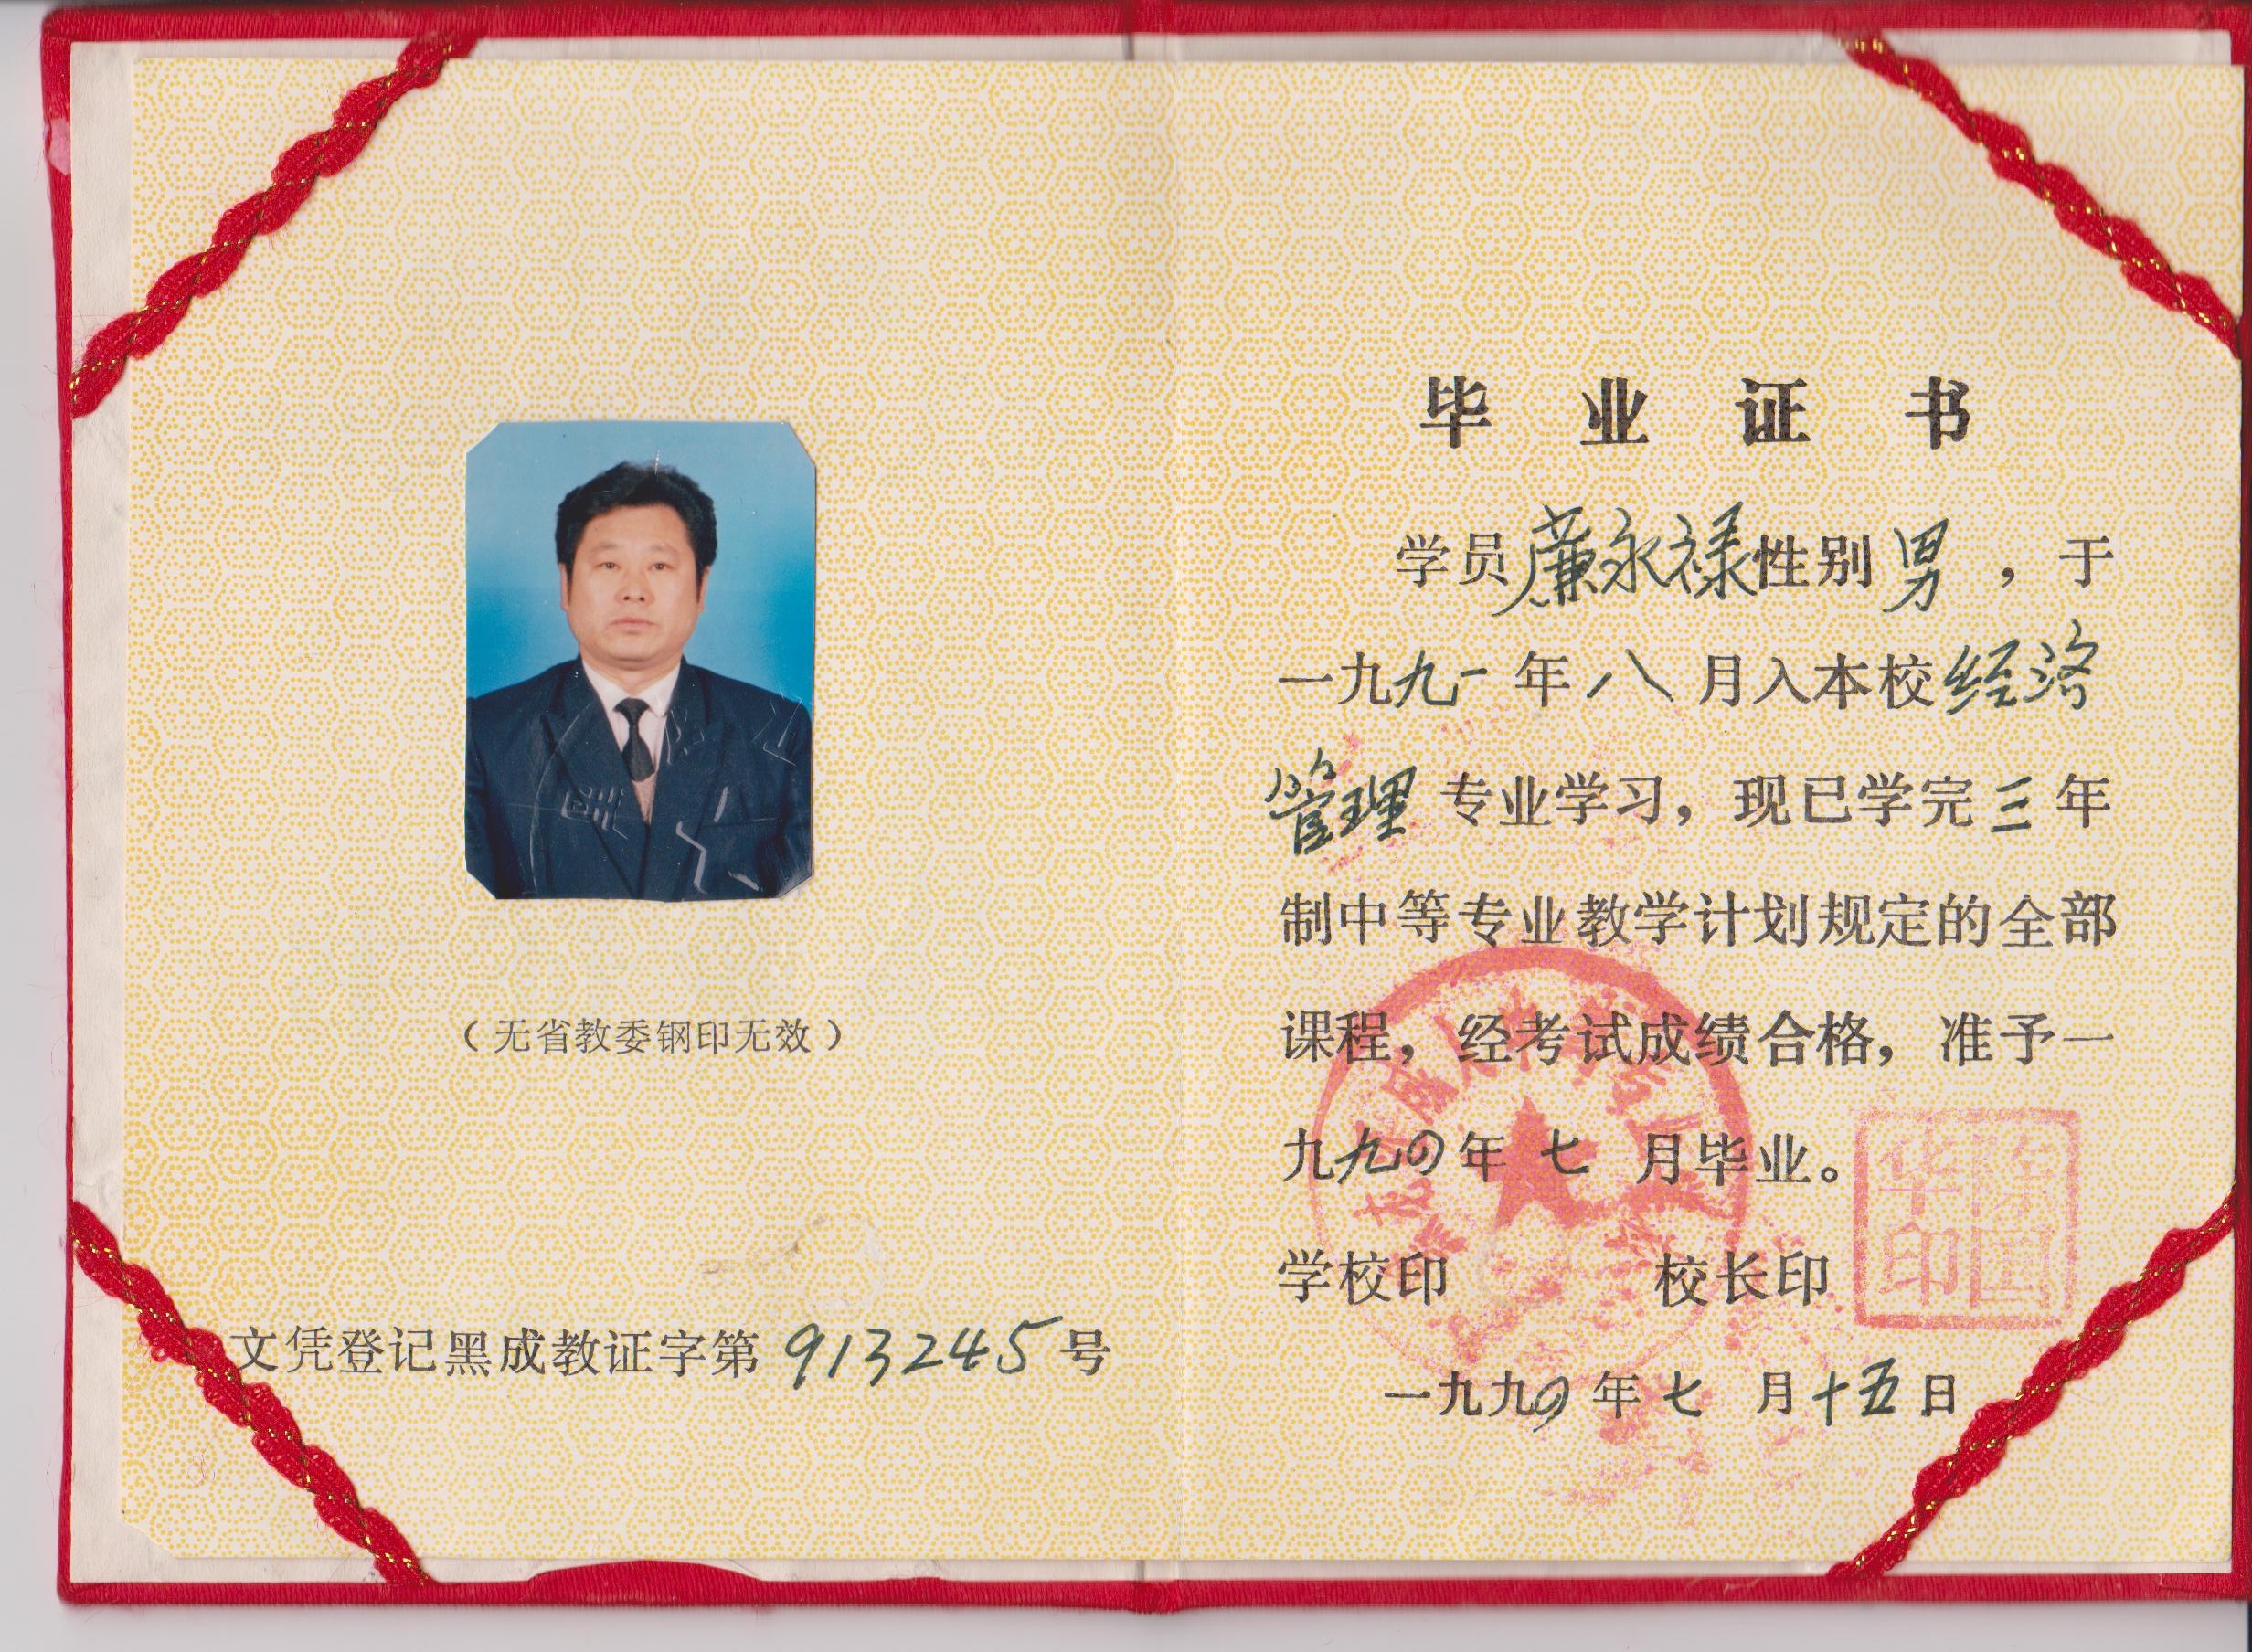 （无省教委钢印无效）
文凭登记黑成教证字第 913245 号
毕业证书
学员廉永禄性别男，于
一九九一年八月入本校经济
管理专业学习，现已学完三年
制中等专业教学计划规定的全部
课程，经考试成绩合格，准予一
九九四年七月毕业。
学校印 校长印
一九九四年七月十五日